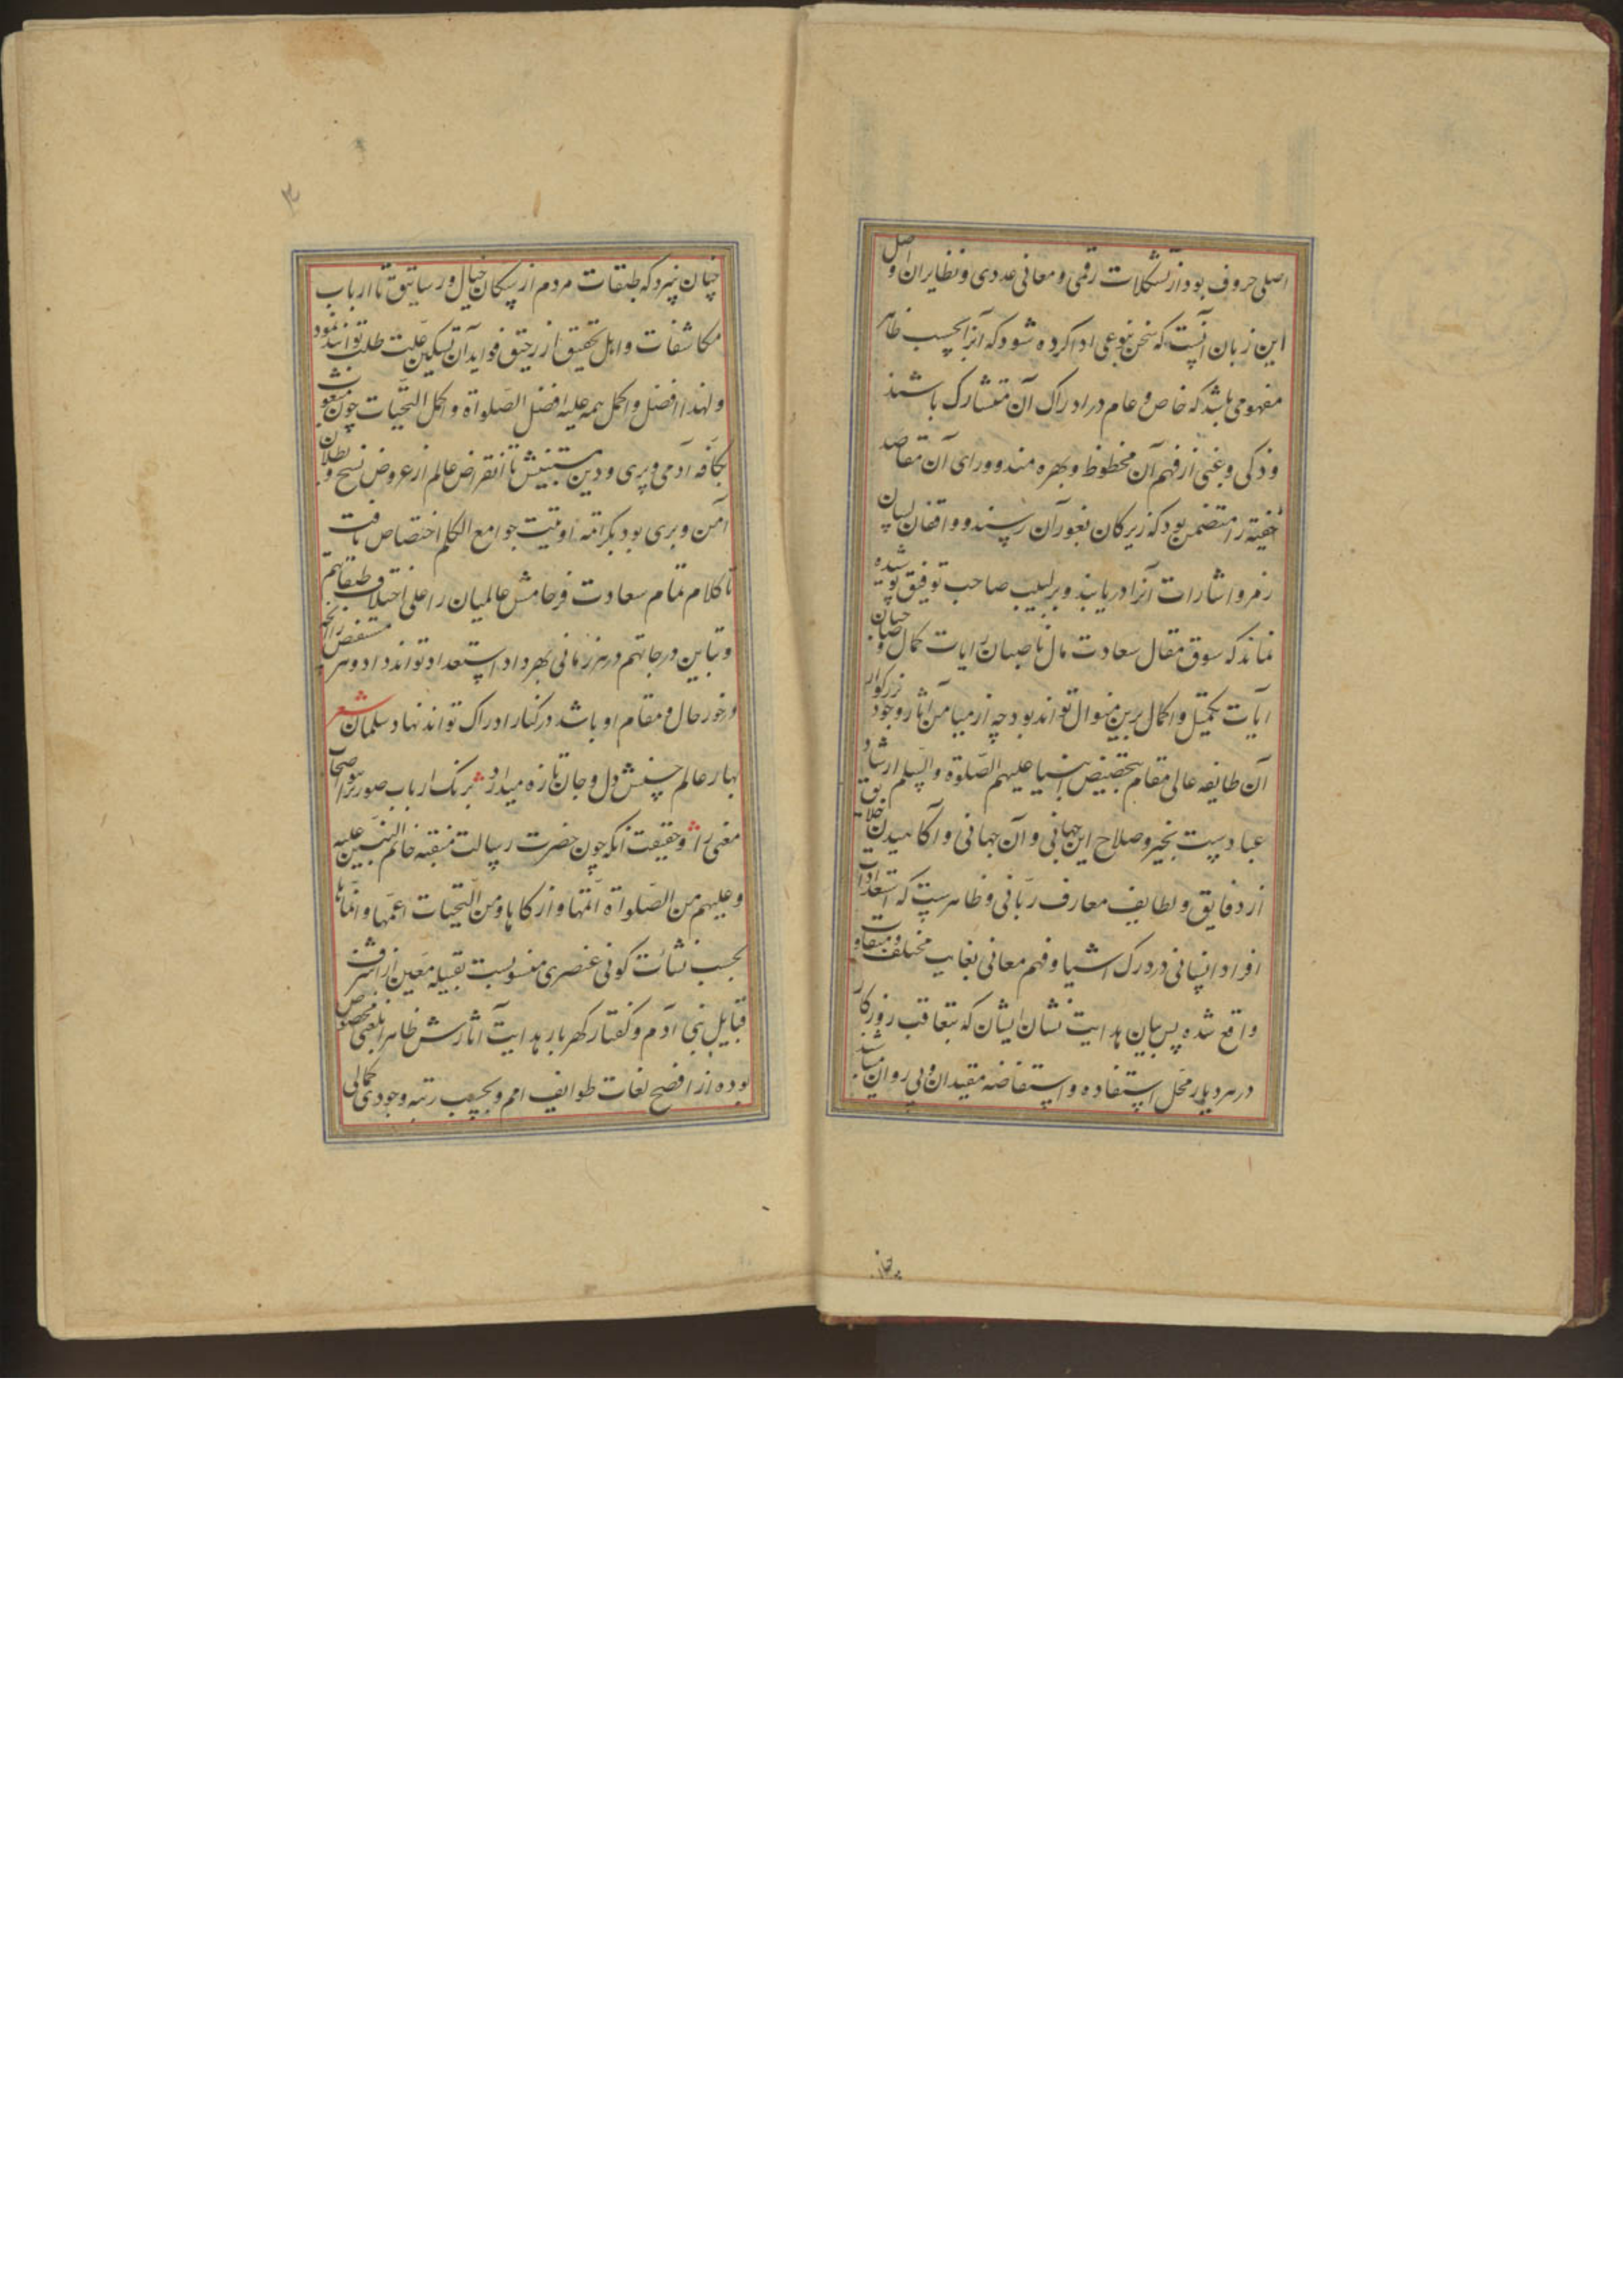 اصلی حروف بود از تشکلات رقمی و معانی عددی و نظایر آن و اصل
این زبان آنست که سخن بنوعی ادا کرده شود که آنرا بحسب ظاهر
مفهومی باشد که خاص و عام در ادراک آن متشارک باشند
و ذکی و غبی از فهم آن محظوظ و بهره مند و ورای آن مقاصد
خفیه را متضمن بود که زیرکان بغور آن رسند و واقفان لسان
رمز و اشارات آنرا دریابند و بر لبیب صاحب توفیق پوشیده
نماند که سوق مقال سعادت مآل ناصبان رایات کمال و صاحبان
آیات تکمیل و اکمال برین منوال تواند بود چه از میامن آثار وجود بزرکوار
آن طایفه عالی مقام بتخصیص انبیا علیهم الصلوة والسلم ارشاد
عبادست بخیر و صلاح این جهانی و آن جهانی و آکاهیدن خلایق
از دقایق و لطایف معارف ربانی و ظاهرست که استعدادات
افراد انسانی در درک اشیا و فهم معانی بغایت مختلف و متفاوت
واقع شده پس بیان هدایت نشان ایشان که بتعاقب روزکار
در هر دیار محل استفاده و استفاضه مقیدان و بی روان میباشد
چنان نیرد که طبقات مردم از سکان جبال و رساتیق تا ارباب
مکاشفات و اهل تحقیق از رحیق فواید آن تسکین غلت طلب توانند نمود
و لهذا افضل و اکمل همه علیه افضل الصلواة و اکمل التحیات چون مبعوث
بکافه آدمی و پری و دین مبینش تا انقراض عالم از عروض نسخ و بطلان
آمن و بری بود بکرامة اوتیت جوامع الکلم اختصاص یافت
تا کلام تمام سعادت فرجامش عالمیان را علی اختلاف طبقاتهم
و تباین درجاتهم در هر زمانی بهر داد استعداد تواند داد و هر مستفیض را آنچه
در خور حال و مقام او باشد در کنار ادراک تواند نهاد سلمان شعر
بهار عالم حسنش دل و جان تازه میدارد برنک ارباب صورترا ببو اصحاب
معنی را و حقیقت آنکه چون حضرت رسالت منقبه خاتم النبیین علیه
و علیهم من الصلواة اتمها و ازکاها و من التحیات اعمها و انماها
بحسب نشائت کونی عنصری منسوبست بقبیله معین از اشرف
قبایل بنی آدم و کفتار کهربار هدایت آثارش ظاهرا بلغتی مخصوص
بوده از افصح لغات طوایف امم و بحسب رتبه وجودی کمالی